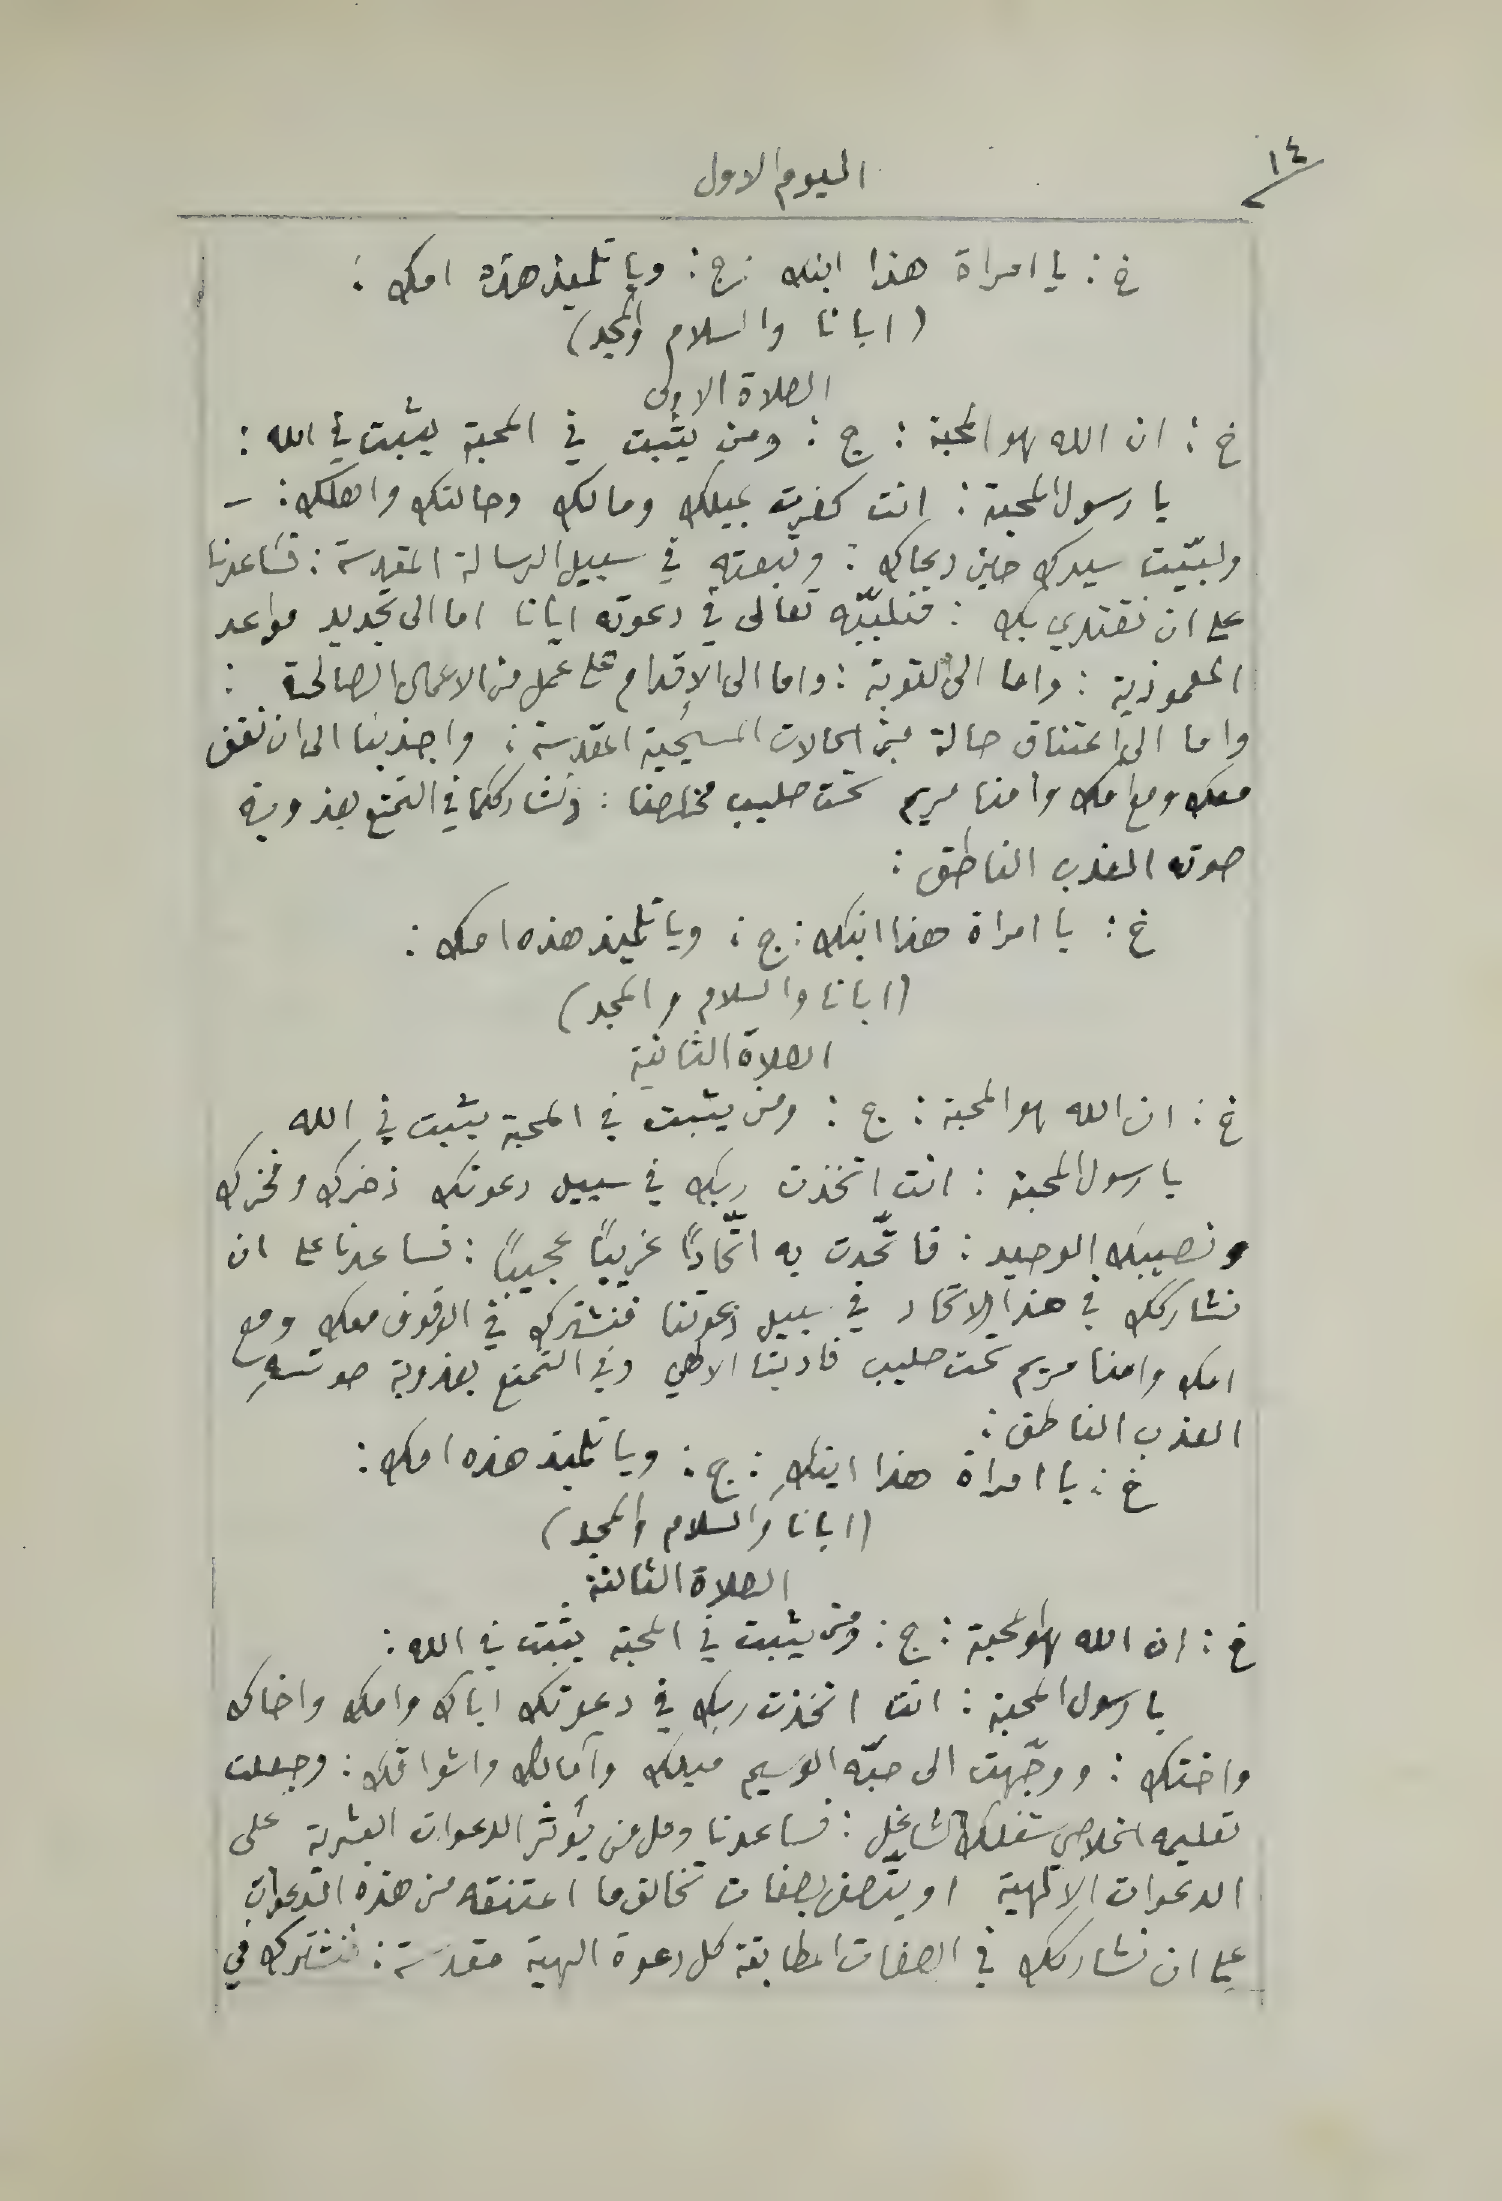 ١٤
اليوم الاول
خ : يا امراة هذا ابنك : ج : ويا تلميذ هذه امك :
( ابانا والسلام والمجد )
الصلاة الاولى
خ : ان الله هو المحبة : ج : ومن يثبت في المحبة يثبت في الله :
يا رسول المحبة : انت كفرت بميلك ومالك وحالتك واهلك : –
ولبيّت سيدك حين دعاك : وتبعته في سبيل الرسالة المقدسة : فساعدنا
على ان نقتدي بك : فنلبيّه تعالى في دعوته ايانا اما الى تجديد مواعد
المعموذية : واما الى التوبة : واما الى الاقدام على عمل من الاعمال الصالحة :
واما الى اعتناق حالة من الحالات المسيحية المقدسة : واجذبنا الى ان نقف
معك ومع امك وامنا مريم تحت صليب مخلصنا : ونشارككما في التمتع بعذوبة
صوته العذب الناطق :
خ : يا امراة هذا ابنك : ج : ويا تلميذ هذه امك :
( ابانا والسلام والمجد )
الصلاة الثانية
خ : ان الله هو المحبة : ج : ومن يثبت في المحبة يثبت في الله
يا رسول المحبة : انت اتخذت ربك في سبيل دعوتك ذخرك وفخرك
ونصيبك الوحيد : فاتّحدت به اتّحادًا غريبًا عجيبًا : فساعدنا على ان
نشاركك في هذا الاتحاد في سبيل دعوتنا فنشترك في الوقوف معك ومع
امك وامنا مريم تحت صليب فادينا الالهي وفي التمتع بعذوبة صوتهِ
العذب الناطق :
خ : يا امراة هذا ابنكِ : ج : ويا تلميذ هذه امك :
( ابانا والسلام والمجد )
الصلاة الثالثة
خ : ان الله هو المحبة : ج : ومن يثبت في المحبة يثبت في الله :
يا رسول المحبة : انت اتخذت ربك في دعوتك اباك وامك واخاك
واختك : ووجّهت الى حبّه الوسيم ميلك وآمالك واشواقك : وجعلت
تعليمه الخلاصي شغلك الشاغل : فساعدنا وكل من يؤثر الدعوات البشرية على
الدعوات الالهية او يتّصف بصفات تخالف ما اعتنقه من هذه الدعوات
على ان نشاركك في الصفات المطابقة كل دعوة الهية مقدسة : فنشترك في